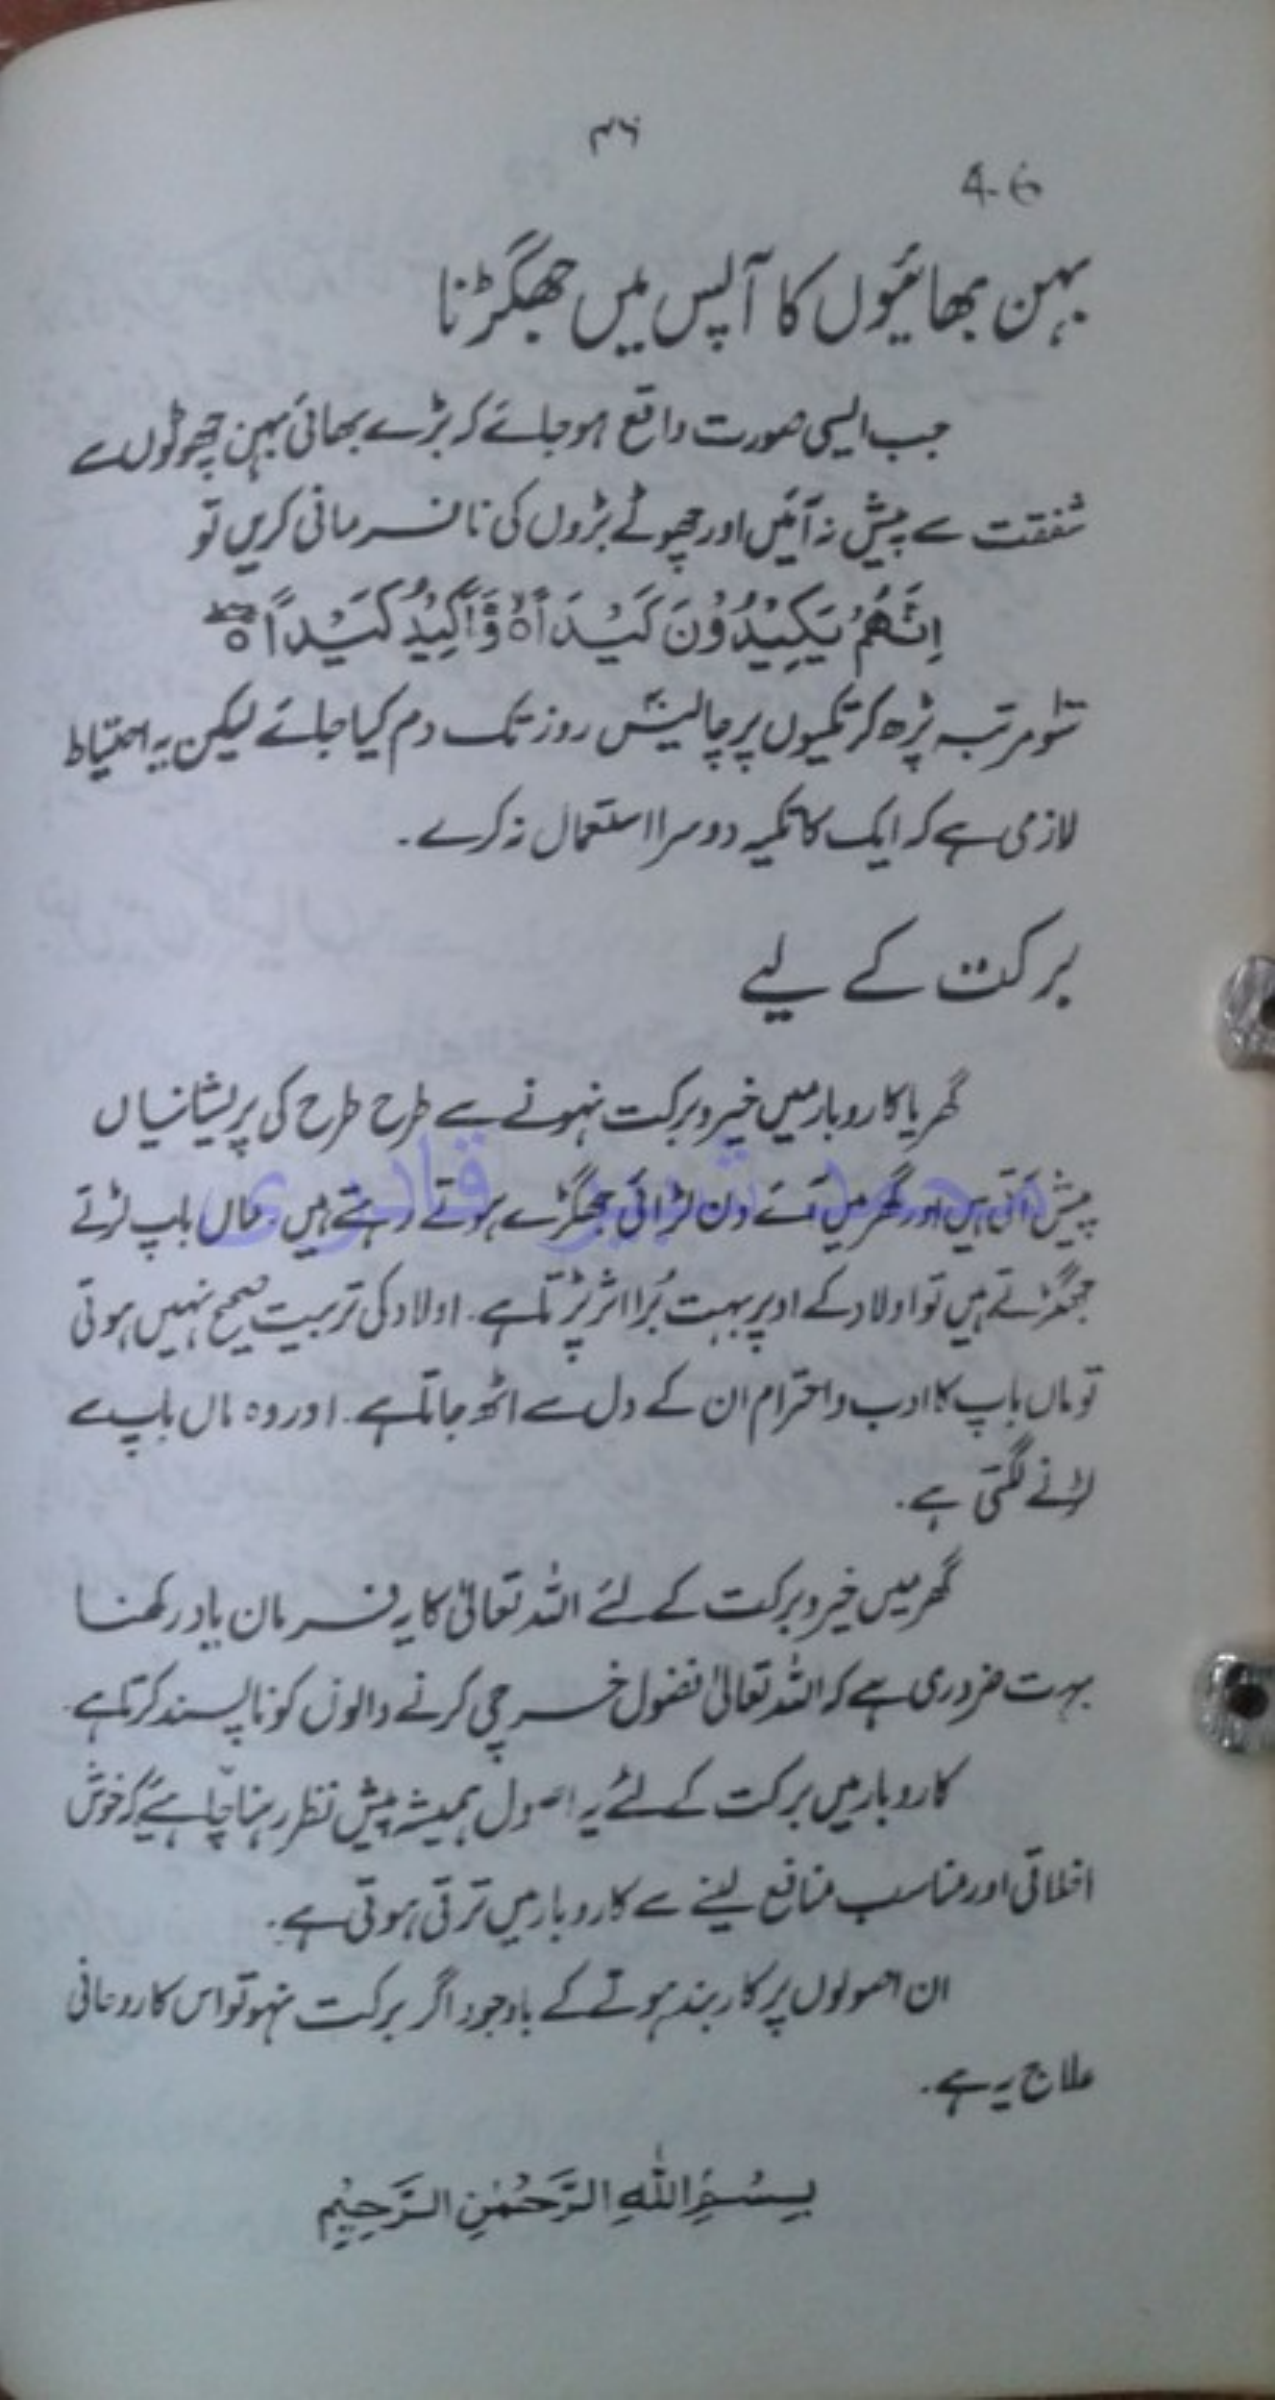 ۴۶
4-6
بہن بھائیوں کا آپس میں جھگڑنا
جب ایسی صورت واقع ہو جائے کہ بڑے بھائی بہن چھوٹوں سے
شفقت سے پیش نہ آئیں اور چھوٹے بڑوں کی نافرمانی کریں تو
اِنَّهُمْ يَكِيْدُوْنَ كَيْدًا ۙ وَّاَكِيْدُ كَيْدًا ۚ
سو مرتبہ پڑھ کر تکیوں پر چالیس۴۰ روز تک دم کیا جائے لیکن یہ احتیاط
لازمی ہے کہ ایک کا تکیہ دوسرا استعمال نہ کرے۔
برکت کے لیے
گھر یا کاروبار میں خیر و برکت نہونے سے طرح طرح کی پریشانیاں
پیش آتی ہیں اور گھر میں آئے دن لڑائی جھگڑے ہوتے رہتے ہیں۔ ماں باپ لڑتے
جھگڑتے ہیں تو اولاد کے اوپر بہت بُرا اثر پڑتا ہے۔ اولاد کی تربیت صحیح نہیں ہوتی
تو ماں باپ کا ادب و احترام ان کے دل سے اٹھ جاتا ہے۔ اور وہ ماں باپ سے
لڑنے لگتی ہے۔
گھر میں خیر و برکت کے لئے اللہ تعالیٰ کا یہ فرمان یاد رکھنا
بہت ضروری ہے کہ اللہ تعالیٰ فضول خرچی کرنے والوں کو ناپسند کرتا ہے۔
کاروبار میں برکت کے لئے یہ اصول ہمیشہ پیش نظر رہنا چاہئے کہ خوش
اخلاقی اور مناسب منافع لینے سے کاروبار میں ترقی ہوتی ہے۔
ان اصولوں پر کاربند ہوتے کے باوجود اگر برکت نہو تو اس کا روحانی
علاج یہ ہے۔
بِسْمِ اللّٰهِ الرَّحْمٰنِ الرَّحِيْمِ
محمد شبیر قادری